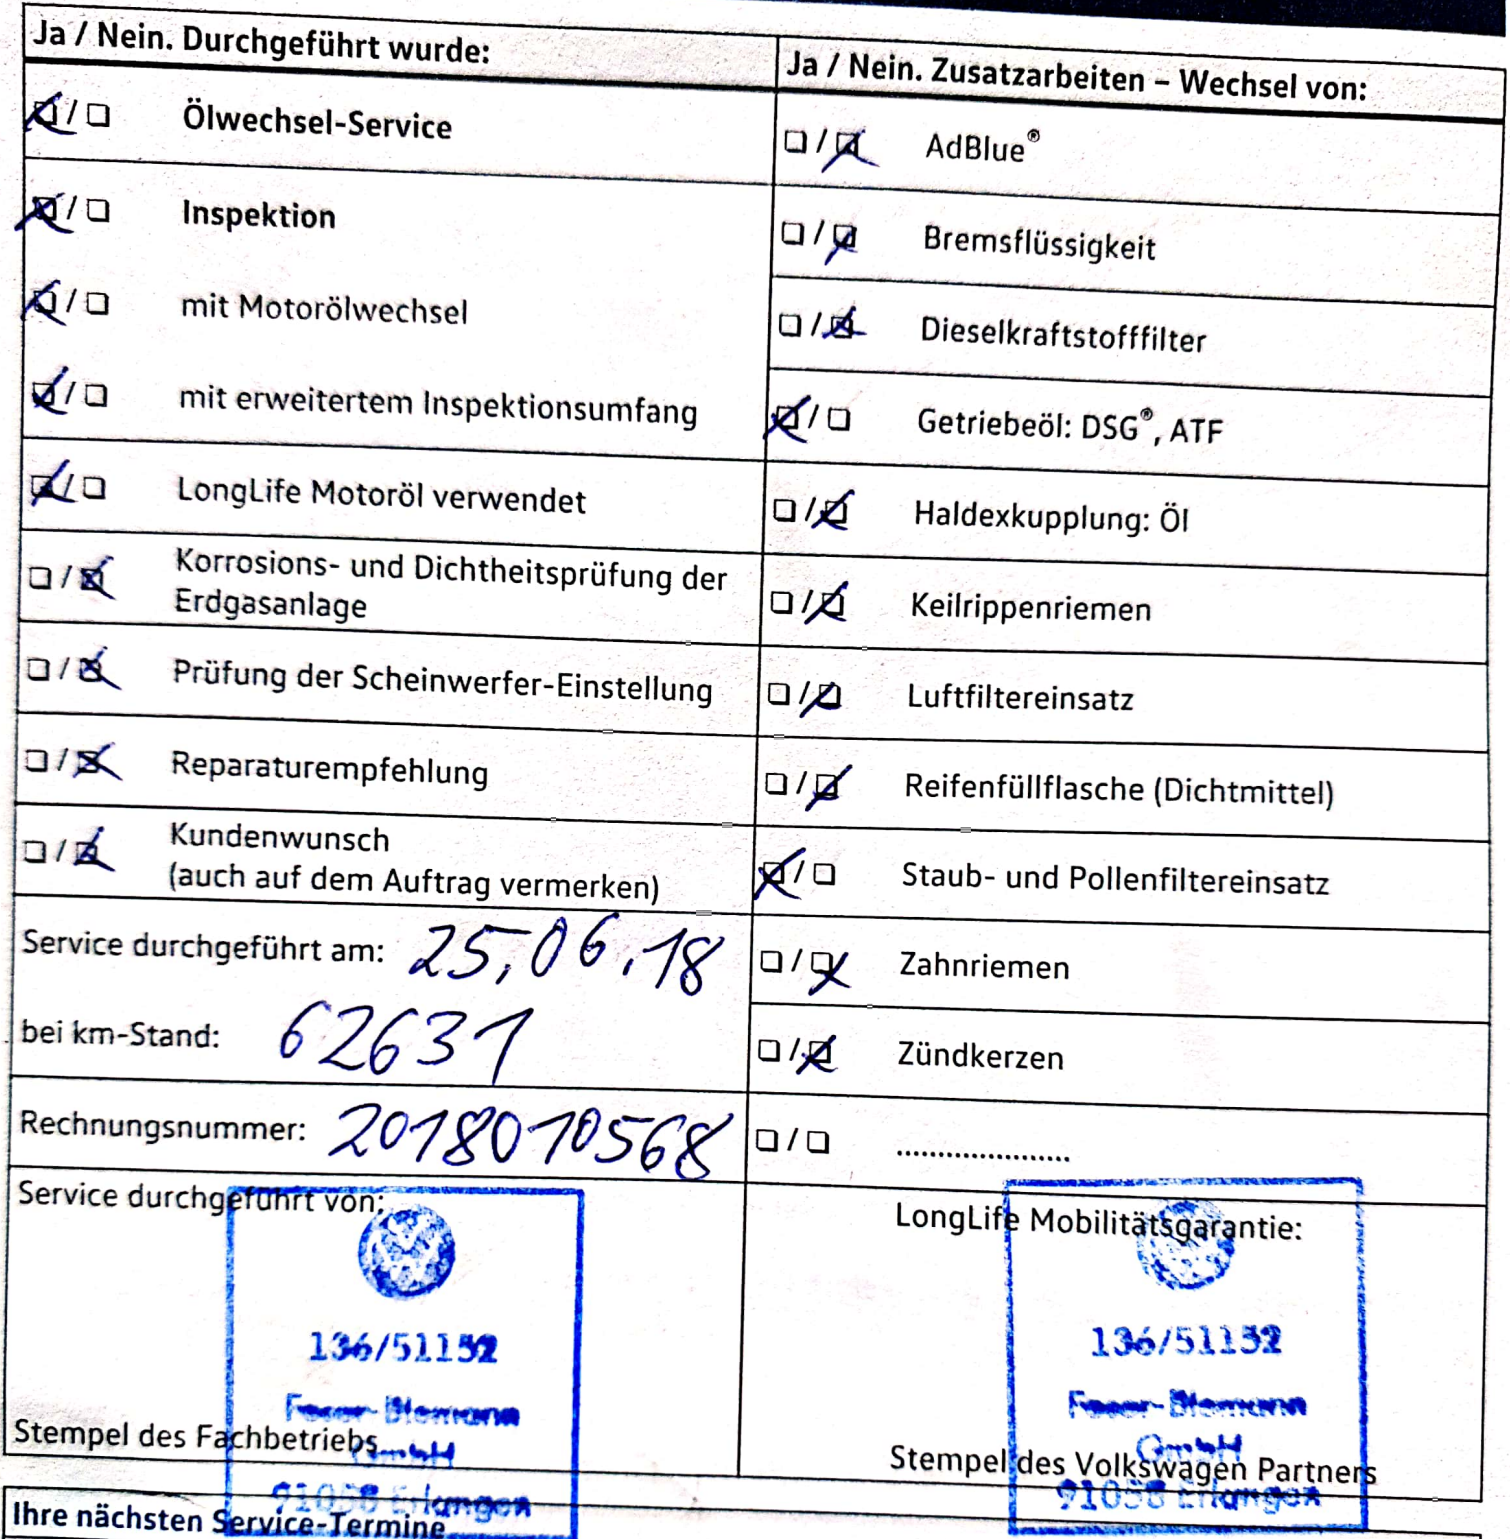 Ja / Nein. Durchgeführt wurde:
☒ / ☐ Ölwechsel-Service
☒ / ☐ Inspektion
☒ / ☐ mit Motorölwechsel
☒ / ☐ mit erweitertem Inspektionsumfang
☒ / ☐ LongLife Motoröl verwendet
☐ / ☒ Korrosions- und Dichtheitsprüfung der
Erdgasanlage
☐ / ☒ Prüfung der Scheinwerfer-Einstellung
☐ / ☒ Reparaturempfehlung
☐ / ☒ Kundenwunsch
(auch auf dem Auftrag vermerken)
Service durchgeführt am: 25.06.18
bei km-Stand: 62631
Rechnungsnummer: 2018010568
Service durchgeführt von:
136/51152
GmbH
91058 Erlangen
Stempel des Fachbetriebs
Ja / Nein. Zusatzarbeiten – Wechsel von:
☐ / ☒ AdBlue®
☐ / ☒ Bremsflüssigkeit
☐ / ☒ Dieselkraftstofffilter
☒ / ☐ Getriebeöl: DSG®, ATF
☐ / ☒ Haldexkupplung: Öl
☐ / ☒ Keilrippenriemen
☐ / ☒ Luftfiltereinsatz
☐ / ☒ Reifenfüllflasche (Dichtmittel)
☒ / ☐ Staub- und Pollenfiltereinsatz
☐ / ☒ Zahnriemen
☐ / ☒ Zündkerzen
☐ / ☐ .....................
LongLife Mobilitätsgarantie:
136/51152
GmbH
91058 Erlangen
Stempel des Volkswagen Partners
Ihre nächsten Service-Termine